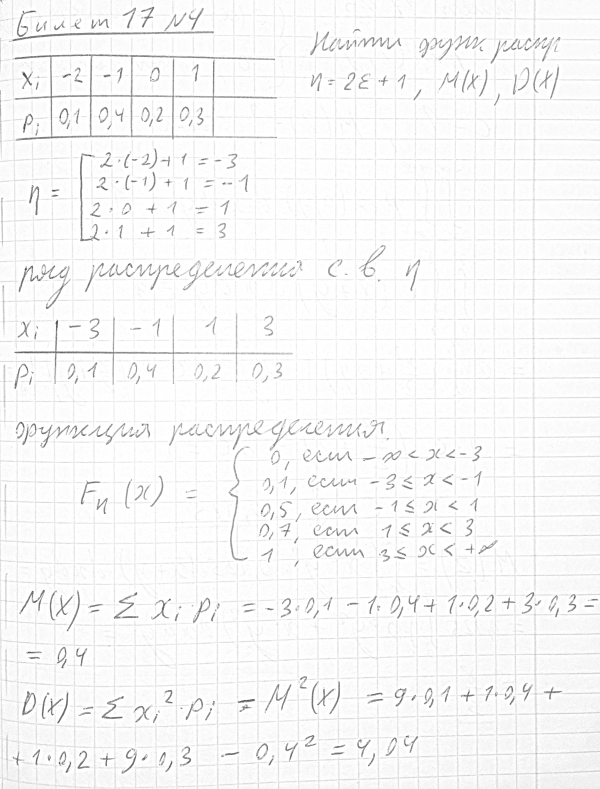 Билет 17 №4
Найти функ распр
η = 2ε + 1, M(X), D(X)
xi -2 -1 0 1
Pi 0,1 0,4 0,2 0,3
η = 2·(-2)+1 = -3
2·(-1)+1 = -1
2·0 + 1 = 1
2·1 + 1 = 3
ряд распределения с.в. η
xi -3 -1 1 3
Pi 0,1 0,4 0,2 0,3
функция распределения.
Fη(x) = 0, если -∞ < x < -3
0,1, если -3 ≤ x < -1
0,5, если -1 ≤ x < 1
0,7, если 1 ≤ x < 3
1, если 3 ≤ x < +∞
M(X) = Σ xi pi = -3·0,1 - 1·0,4 + 1·0,2 + 3·0,3 =
= 0,4
D(X) = Σ xi²·pi - M²(X) = 9·0,1 + 1·0,4 +
+ 1·0,2 + 9·0,3 - 0,4² = 4,04